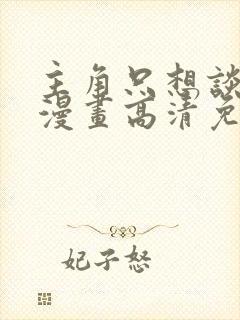 主角只想談
漫畫高清免
妃子怒